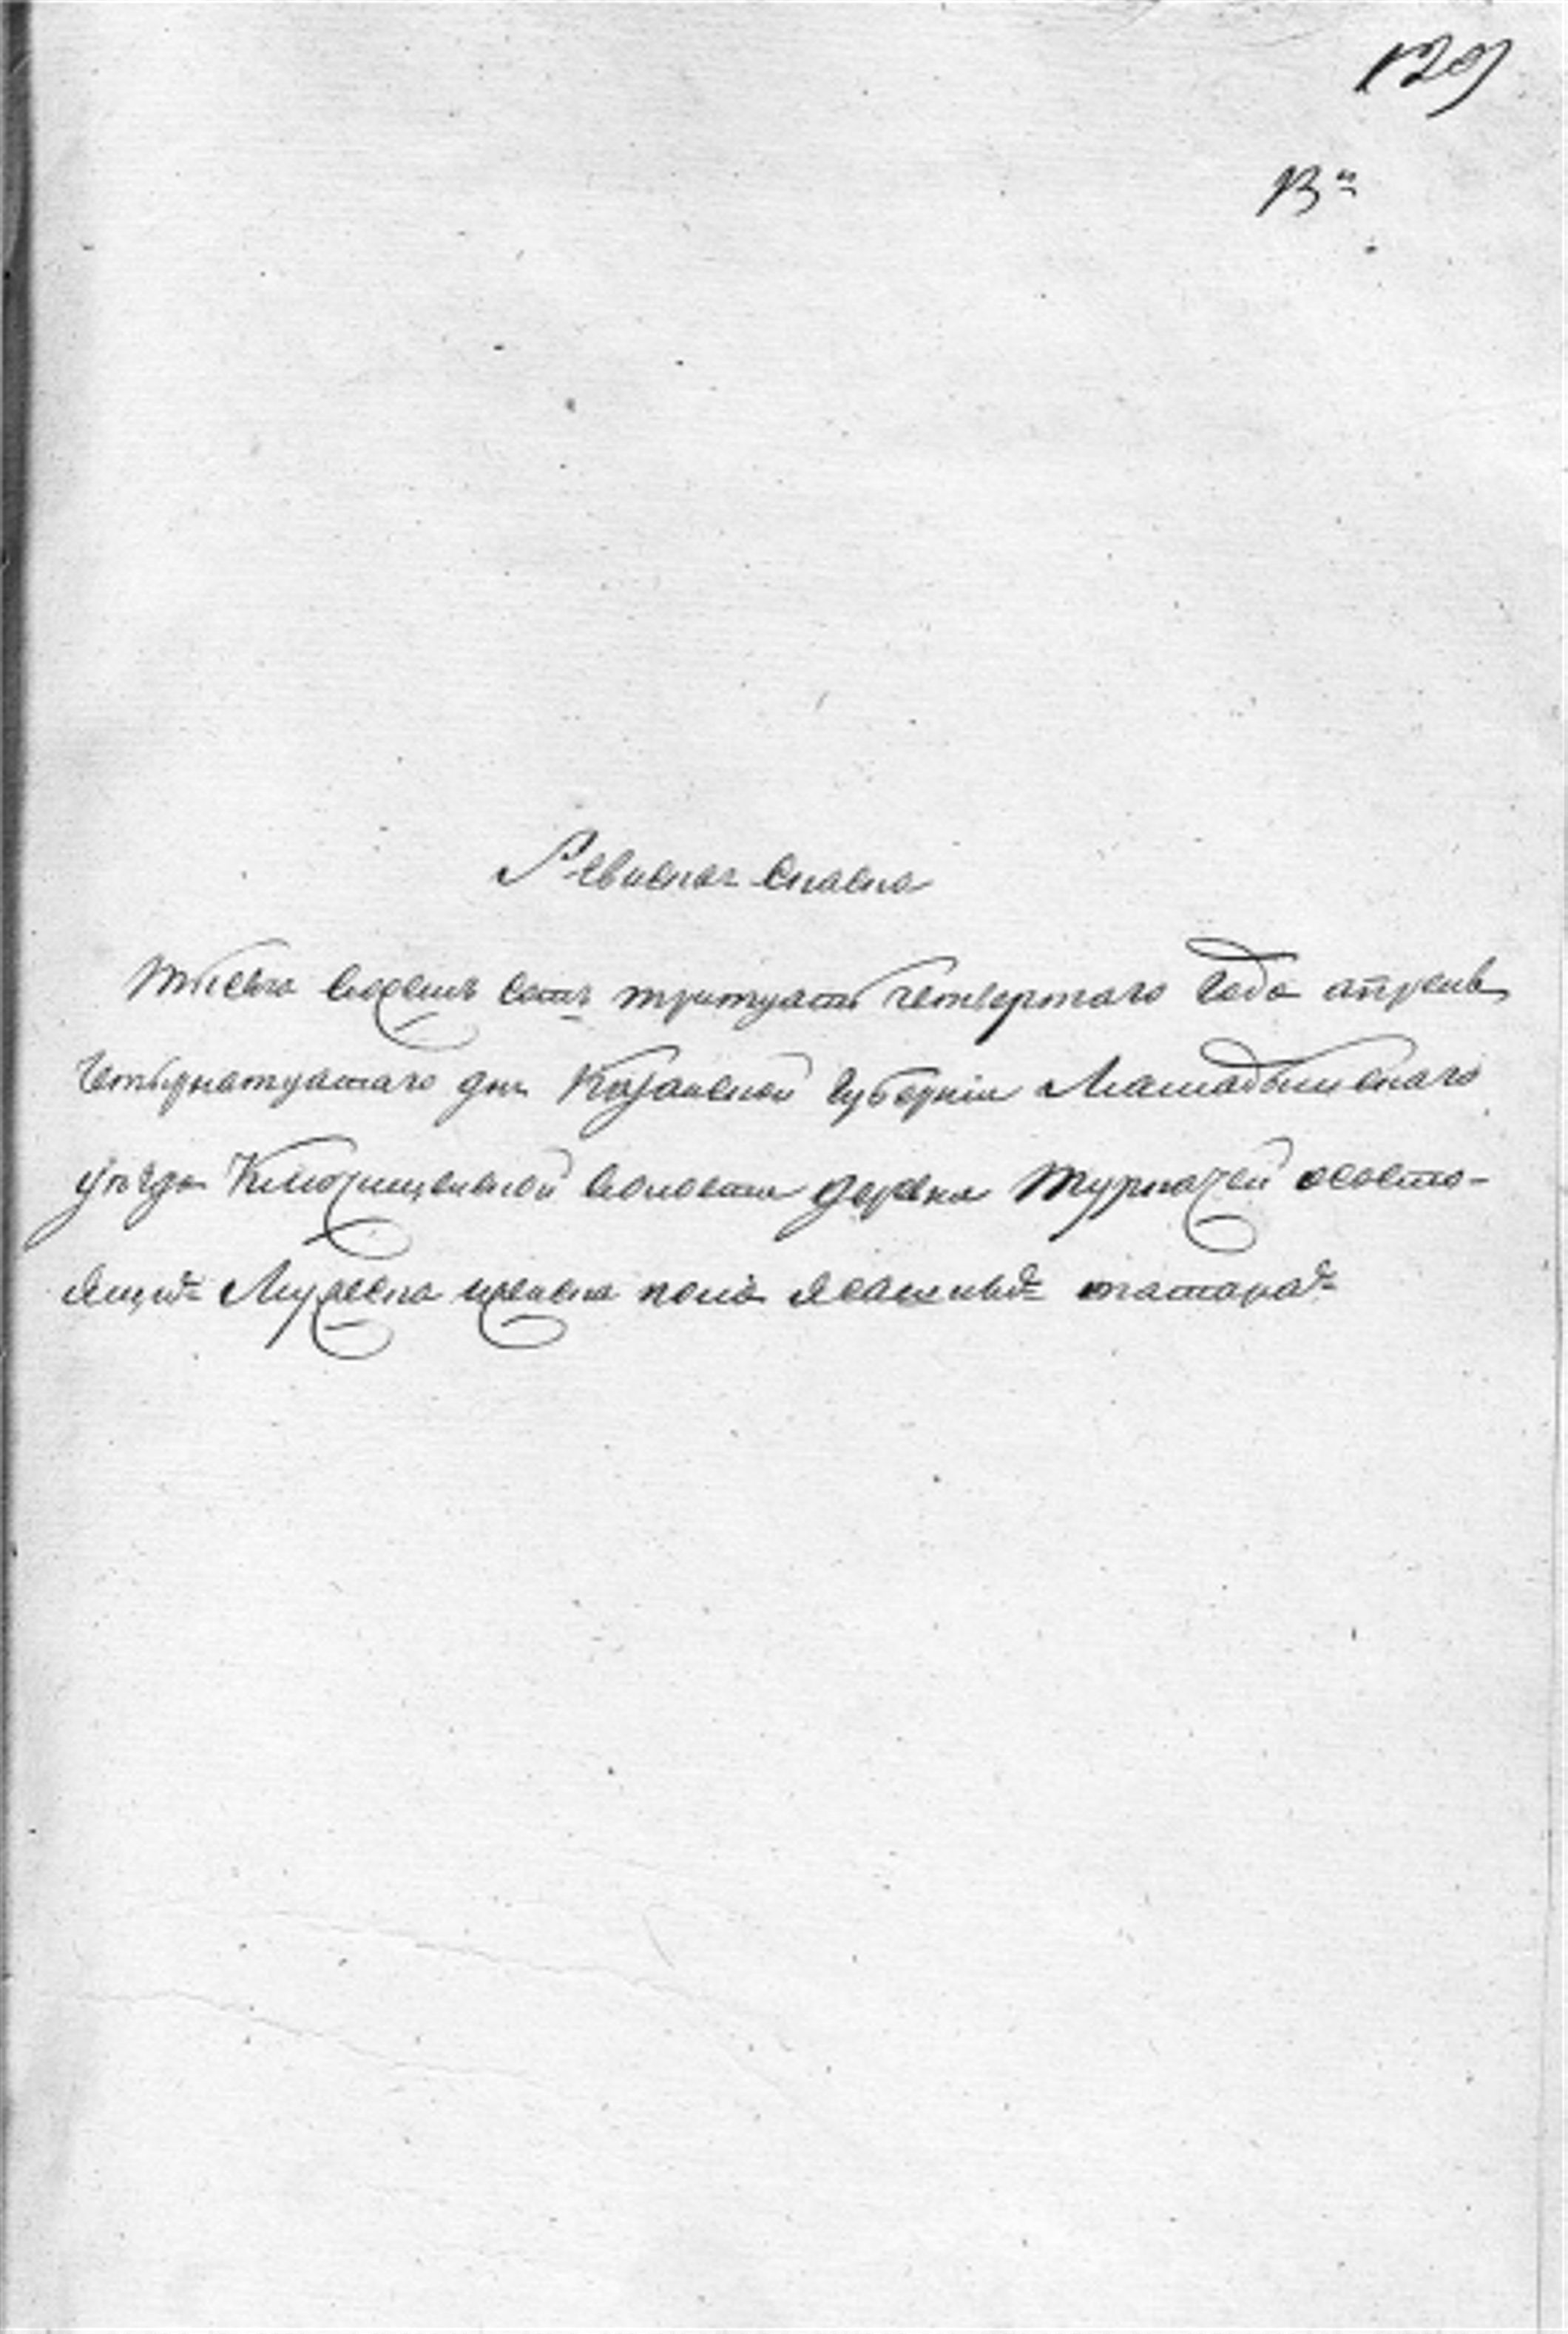 129
13
Ревиская Скаска
тысяча восемь сотъ тритцать четвертаго года апреля
четырнатцатаго дня Казанской губерніи Мамадышскаго
уезда Ключищенской волости деревни Турначей о состо-
ящихъ мужеска женска пола ясашныхъ татарахъ